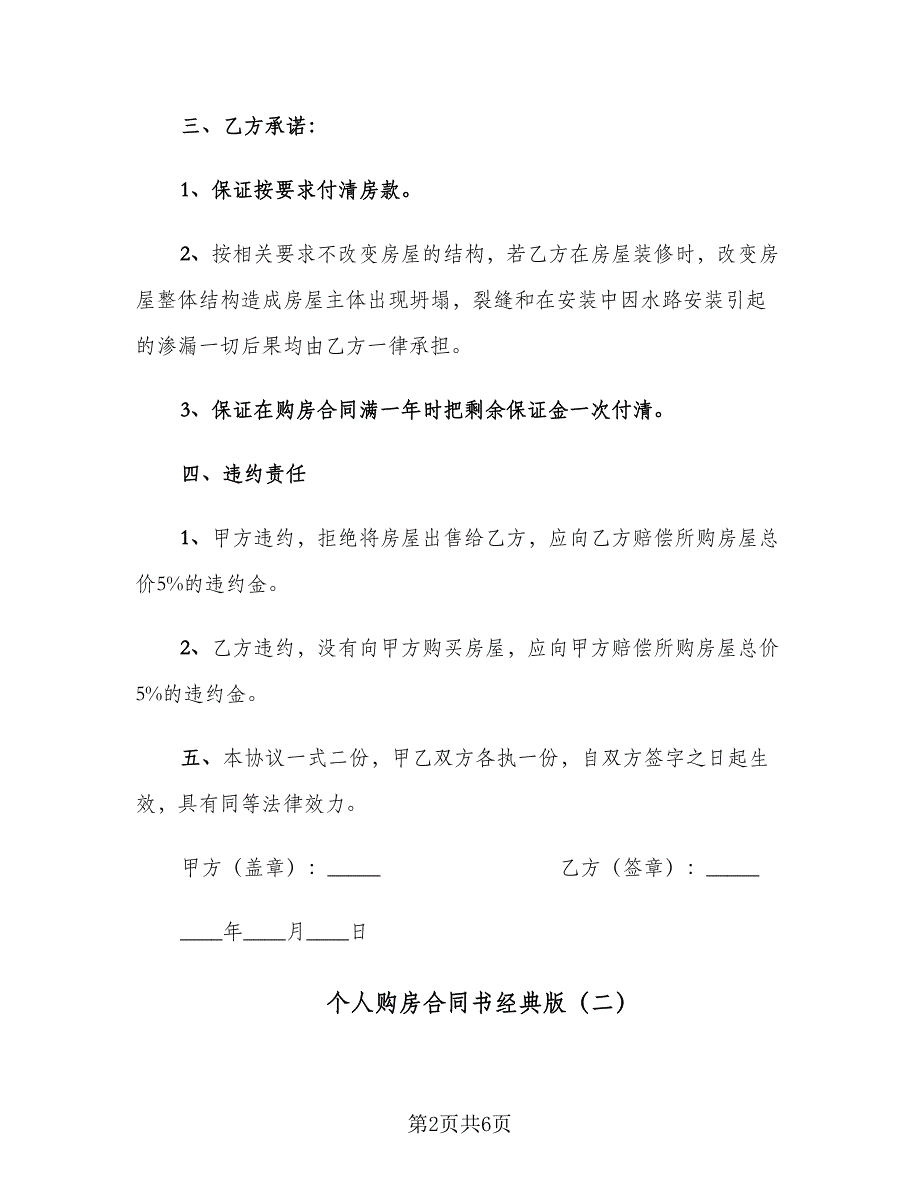 三、乙方承诺：
1、保证按要求付清房款。
2、按相关要求不改变房屋的结构，若乙方在房屋装修时，改变房
屋整体结构造成房屋主体出现坍塌，裂缝和在安装中因水路安装引起
的渗漏一切后果均由乙方一律承担。
3、保证在购房合同满一年时把剩余保证金一次付清。
四、违约责任
1、甲方违约，拒绝将房屋出售给乙方，应向乙方赔偿所购房屋总
价5%的违约金。
2、乙方违约，没有向甲方购买房屋，应向甲方赔偿所购房屋总价
5%的违约金。
五、本协议一式二份，甲乙双方各执一份，自双方签字之日起生
效，具有同等法律效力。
甲方（盖章）：_____ 乙方（签章）：_____
____年____月____日
个人购房合同书经典版（二）
第2页共6页